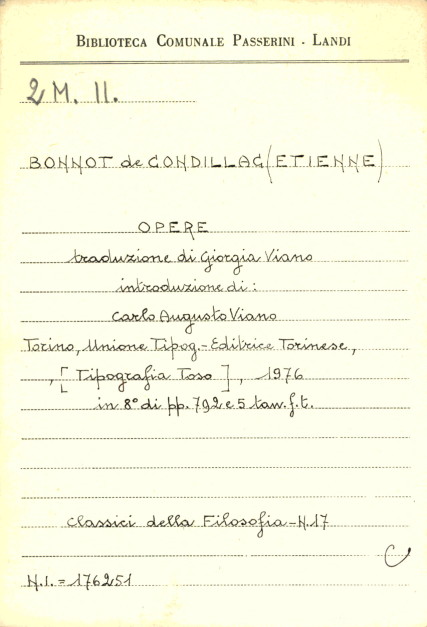 BIBLIOTECA COMUNALE PASSERINI - LANDI
2 M. 11.
BONNOT de CONDILLAC (ETIENNE)
OPERE
traduzione di Giorgia Viano
introduzione di:
Carlo Augusto Viano
Torino, Unione Tipog.-Editrice Torinese,
, [Tipografia Toso], 1976
in 8° di pp. 792 e 5 tav. f.t.
Classici della Filosofia - N. 17
C
N.I. = 176251